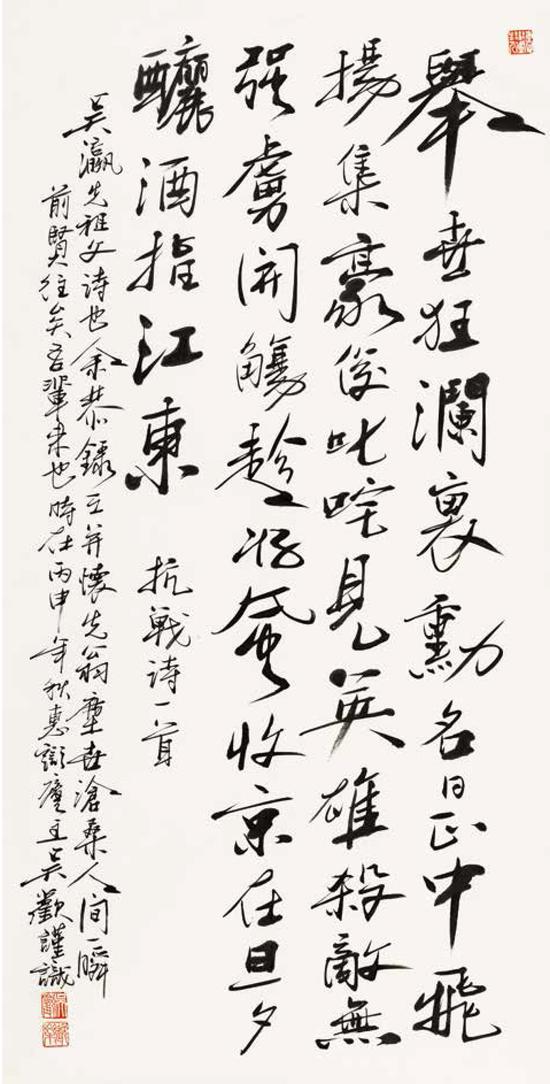 舉世狂瀾裏勳名日正中飛
揚集豪俊叱咤見英雄殺敵無
强虜開觴趁風收京在旦夕
釃酒指江東 抗戰詩一首
吳瀛先祖父詩也余恭錄之并懷先翁塵世滄桑人間一瞬
前賢往矣吾輩來也時在丙申年秋惠廬主吳歡謹識